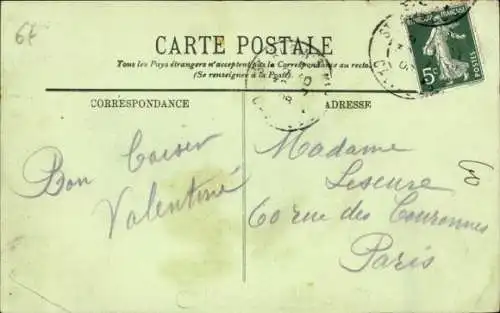 6£
CARTE POSTALE
Tous les Pays étrangers n'acceptent pas la Correspondance au recto.
(Se renseigner à la Poste).
CORRESPONDANCE
ADRESSE
5c
POSTES
Bon baiser
Valentine
Madame
Leseure
60 rue des Couronnes
Paris